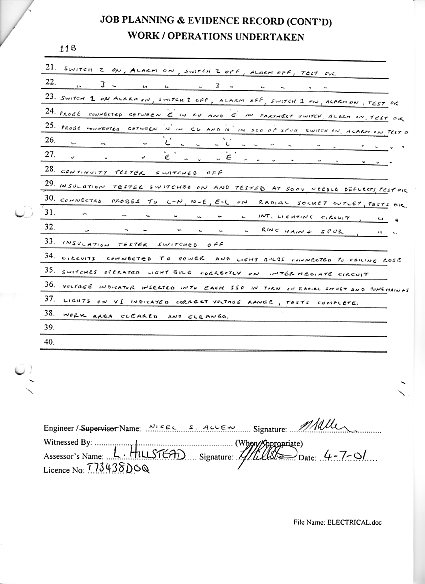 JOB PLANNING & EVIDENCE RECORD (CONT'D)
WORK / OPERATIONS UNDERTAKEN
11B
21. SWITCH 2 ON, ALARM ON, SWITCH 2 OFF, ALARM OFF, TEST OK
22. " 3 " " " 3 " " "
23. SWITCH 1 ON ALARM ON, SWITCH 2 OFF, ALARM OFF, SWITCH 1 ON, ALARM ON, TEST OK
24. PROBE CONNECTED BETWEEN E IN CU AND E IN SWITCH ALARM ON, TEST OK
25. PROBE CONNECTED BETWEEN N IN CU AND N IN SSO OF SPUR SWITCH ON ALARM ON TEST O
26. " " " L " " L " " " " " " "
27. " " " E " " E " " " " " " "
28. CONTINUITY TESTER SWITCHED OFF
29. INSULATION TESTER SWITCHED ON AND TESTED AT 500V NEEDLE DEFLECTS, TEST OK
30. CONNECTED PROBES TO L-N, N-E, E-L ON RADIAL SOCKET OUTLET, TESTS OK
31. " " " " " INT. LIGHTING CIRCUIT, " "
32. " " " " " RING MAINS SPUR, " "
33. INSULATION TESTER SWITCHED OFF
34. CIRCUITS CONNECTED TO POWER AND LIGHT BULBS CONNECTED TO CEILING ROSE
35. SWITCHES OPERATED LIGHT BULB CORRECTLY ON INTERMEDIATE CIRCUIT
36. VOLTAGE INDICATOR INSERTED INTO EACH SSO IN TURN ON RADIAL SPUR AND RING MAINS
37. LIGHTS ON VI INDICATED CORRECT VOLTAGE RANGE, TESTS COMPLETE.
38. WORK AREA CLEARED AND CLEANED.
39.
40.
Engineer / Supervisor Name: NIGEL S. ALLEN Signature:
Witnessed By: (Where Appropriate)
Assessor's Name: L. HILLSTEAD Signature: Date: 4-7-01
Licence No: T73438D0Q
File Name: ELECTRICAL.doc